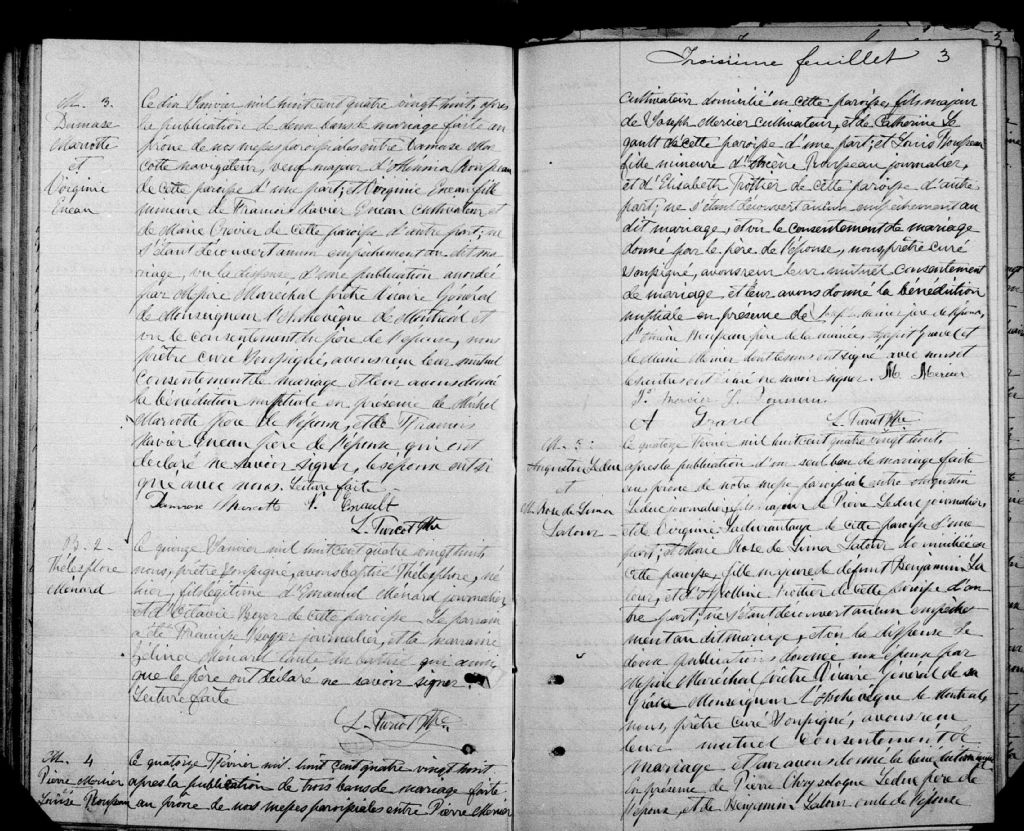 M. 3.
Damase
Mariotte
et
Virginie
Eneau
Le dix Janvier mil huit cent quatre vingt huit, après
la publication de deux bans de mariage faite au
prône de nos messes paroissiales entre Damase Ma
riotte navigateur, veuf majeur d'
de cette paroisse d'une part; et Virginie Eneau fille
mineure de Francois Xavier Eneau cultivateur et
de Marie de cette paroisse d'autre part; ne
s'étant découvert aucun empêchement au dit ma
riage, vu la dispense d'une publication accordée
par Messire Maréchal prêtre Vicaire Général
de Monseigneur l'Archevêque de Montréal et
vu le consentement du père de l'épouse, nous
prêtre curé soussigné, avons reçu leur mutuel
consentement de mariage et leur avons donné
la bénédiction nuptiale en présence de Michel
Mariotte père de l'époux, et de Francois
Xavier Eneau père de l'épouse qui ont
déclaré ne savoir signer, les époux ont si
gné avec nous. Lecture faite
Damase V. Enault
L. Turcot Ptre
B. 2
Thélesphore
Ménard
Le quinze Janvier mil huit cent quatre vingt huit
nous, prêtre soussigné, avons baptisé Thélesphore, né
hier, fils légitime d'Emanuel Ménard journalier
et d'Octavie de cette paroisse. Le parrain
a été journalier, et la marraine
Ménard tante du baptisé qui ainsi
que le père ont déclaré ne savoir signer.
Lecture faite
L. Turcot Ptre
M. 4
Pierre Mercier
Louise Rouseau
Le quatorze Février mil huit cent quatre vingt huit
après la publication de trois bans de mariage faite
au prône de nos messes paroissiales entre Pierre Mercier
Troisième feuillet 3
cultivateur domicilié en cette paroisse, fils majeur
de Joseph Mercier cultivateur, et de Catherine Le
gault de cette paroisse d'une part; et
fille mineure d' journalier,
et d'Elisabeth Trottier de cette paroisse d'autre
part; ne s'étant découvert aucun empêchement au
dit mariage, et vu le consentement de mariage
donné par le père de l'épouse, nous prêtre curé
soussigné, avons reçu leur mutuel consentement
de mariage et leur avons donné la bénédiction
nuptiale en présence de Mercier père de l'époux,
père de la mariée, Gravel et
de Mercier dont les uns ont signé avec nous et
les autres ont déclaré ne savoir signer. M. Mercier
P. Mercier
A Gravel L. Turcot Ptre
M. 5:
Augustin Leduc
et
M. Rose de Lima
Latour
Le quatorze Février mil huit cent quatre vingt huit,
après la publication d'un seul ban de mariage faite
au prône de notre messe paroissiale entre Augustin
Leduc journalier, fils majeur de Pierre Leduc journalier,
et de Virginie Laderoutage de cette paroisse d'une
part; et Marie Rose de Lima Latour domiciliée en
cette paroisse, fille mineure de défunt Benjamin La
tour, et d'Apolline Trottier de cette paroisse d'au
tre part; ne s'étant découvert aucun empêche
ment au dit mariage, et vu la dispense de
deux publications par
Messire Maréchal prêtre Vicaire Général de sa
Grâce Monseigneur l'Archevêque de Montréal,
nous, prêtre curé soussigné, avons reçu
leur mutuel consentement de
mariage et leur avons donné la bénédiction
en présence de Pierre Chrysologue Leduc père de
l'époux, et de Benjamin Latour oncle de l'épouse